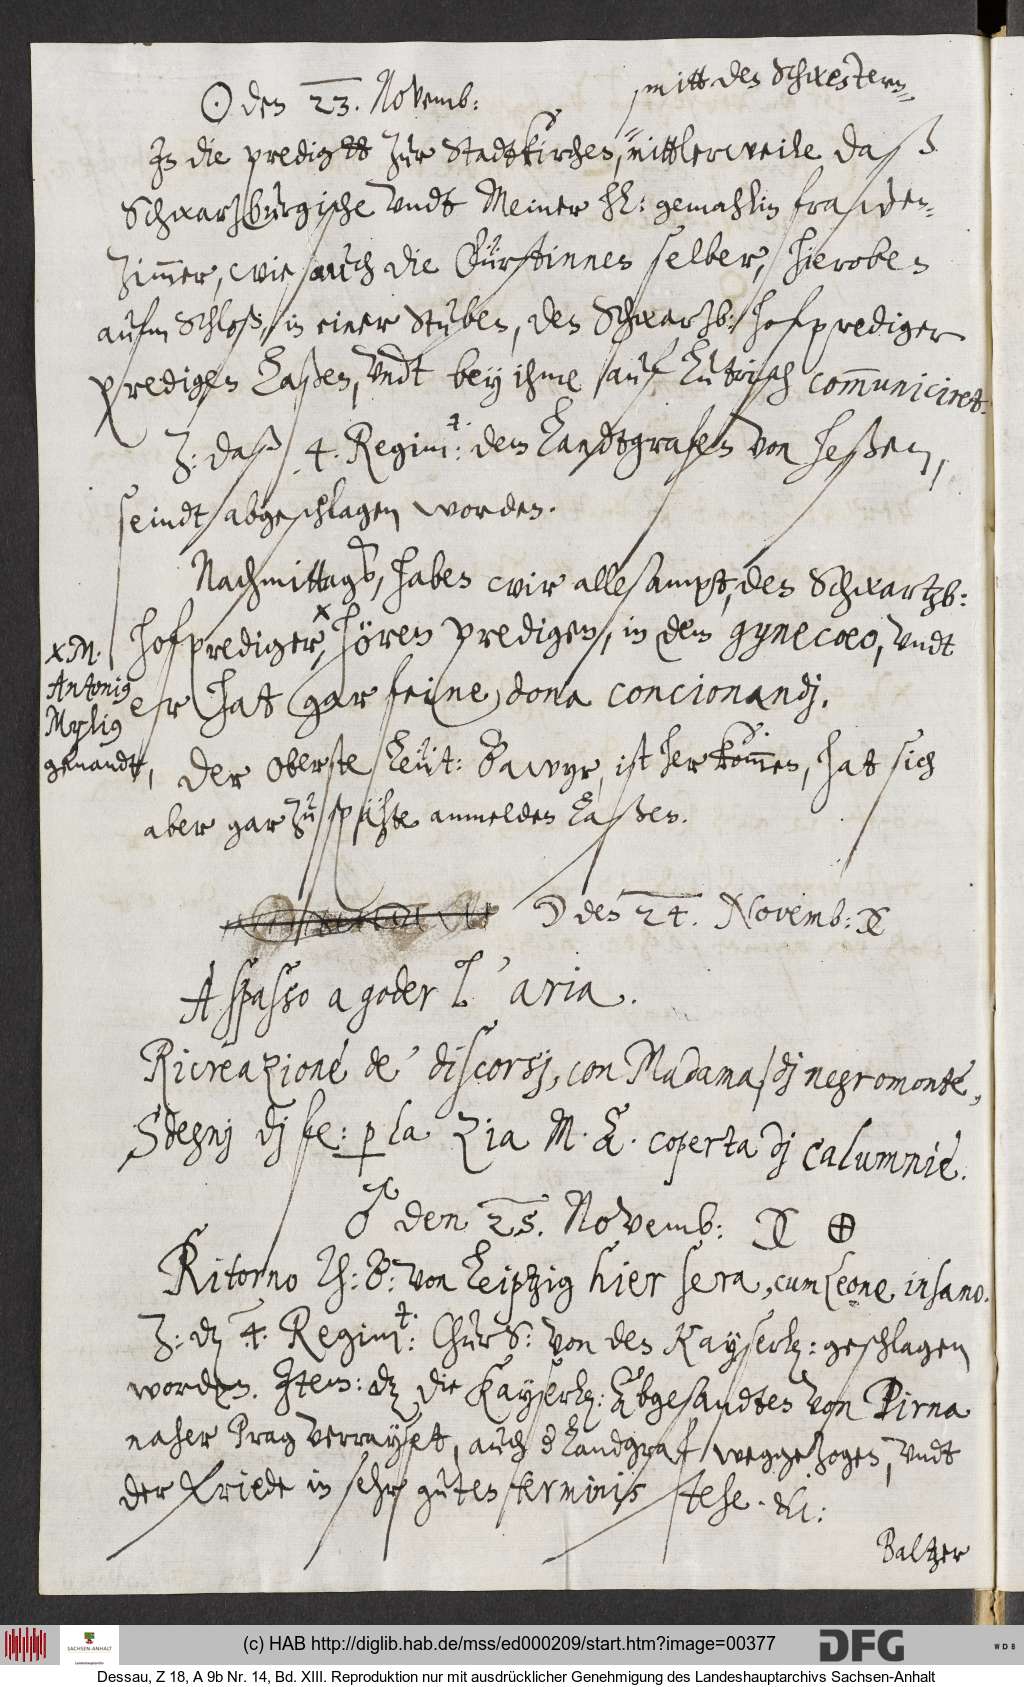 ☉ den 23. Novemb:
mitt den Schwestern,
In die predigtt zur Stadtkirchen, mittlerweile daß
Schwartzburgische undt Meiner hl: gemahlin frawen-
zimmer, wie auch die Fürstinnen selber, hieroben
aufm Schloß, in einer Stuben, den Schwartzb: hofprediger
predigen laßen, undt bey ihme auf Lutrisch com̄uniciret.
Z: daß 4. Regimt: dem Landtgrafen von Heßen,
seindt abgeschlagen worden.
Nachmittags, haben wir allesampt, den Schwartzb:
hofprediger, x hören predigen, in dem gynecæo, undt
x M.
Antonius
Mylius
genandt,
er hat gar feine dona concionandj.
Der Oberste Leüt: Bawyr, ist her kommen, hat sich
aber gar zu spähte anmelden laßen.
☽ den 24. Novemb:
A spasso a goder l'aria.
Ricreazione de' discorsj, con Madama, dj negromonte,
Sdegnj dj se: p la Zia M. E. coperta dj calumnie.
♂ den 25. Novemb: ⊕
Ritorno Th: B: von Leiptzig hier sera, cum Leone insano.
Z: dz 4. Regimt: ChurS: von den Kayserl: geschlagen
worden. Item: dz die Kayserl: Abgesandten von Pirna
naher Prag verrayset, auch d Landgraf weggezogen, undt
der Friede in sehr guten terminis stehe. &c:
Baltzer
(c) HAB http://diglib.hab.de/mss/ed000209/start.htm?image=00377
DFG
WDB
SACHSEN-ANHALT
Dessau, Z 18, A 9b Nr. 14, Bd. XIII. Reproduktion nur mit ausdrücklicher Genehmigung des Landeshauptarchivs Sachsen-Anhalt